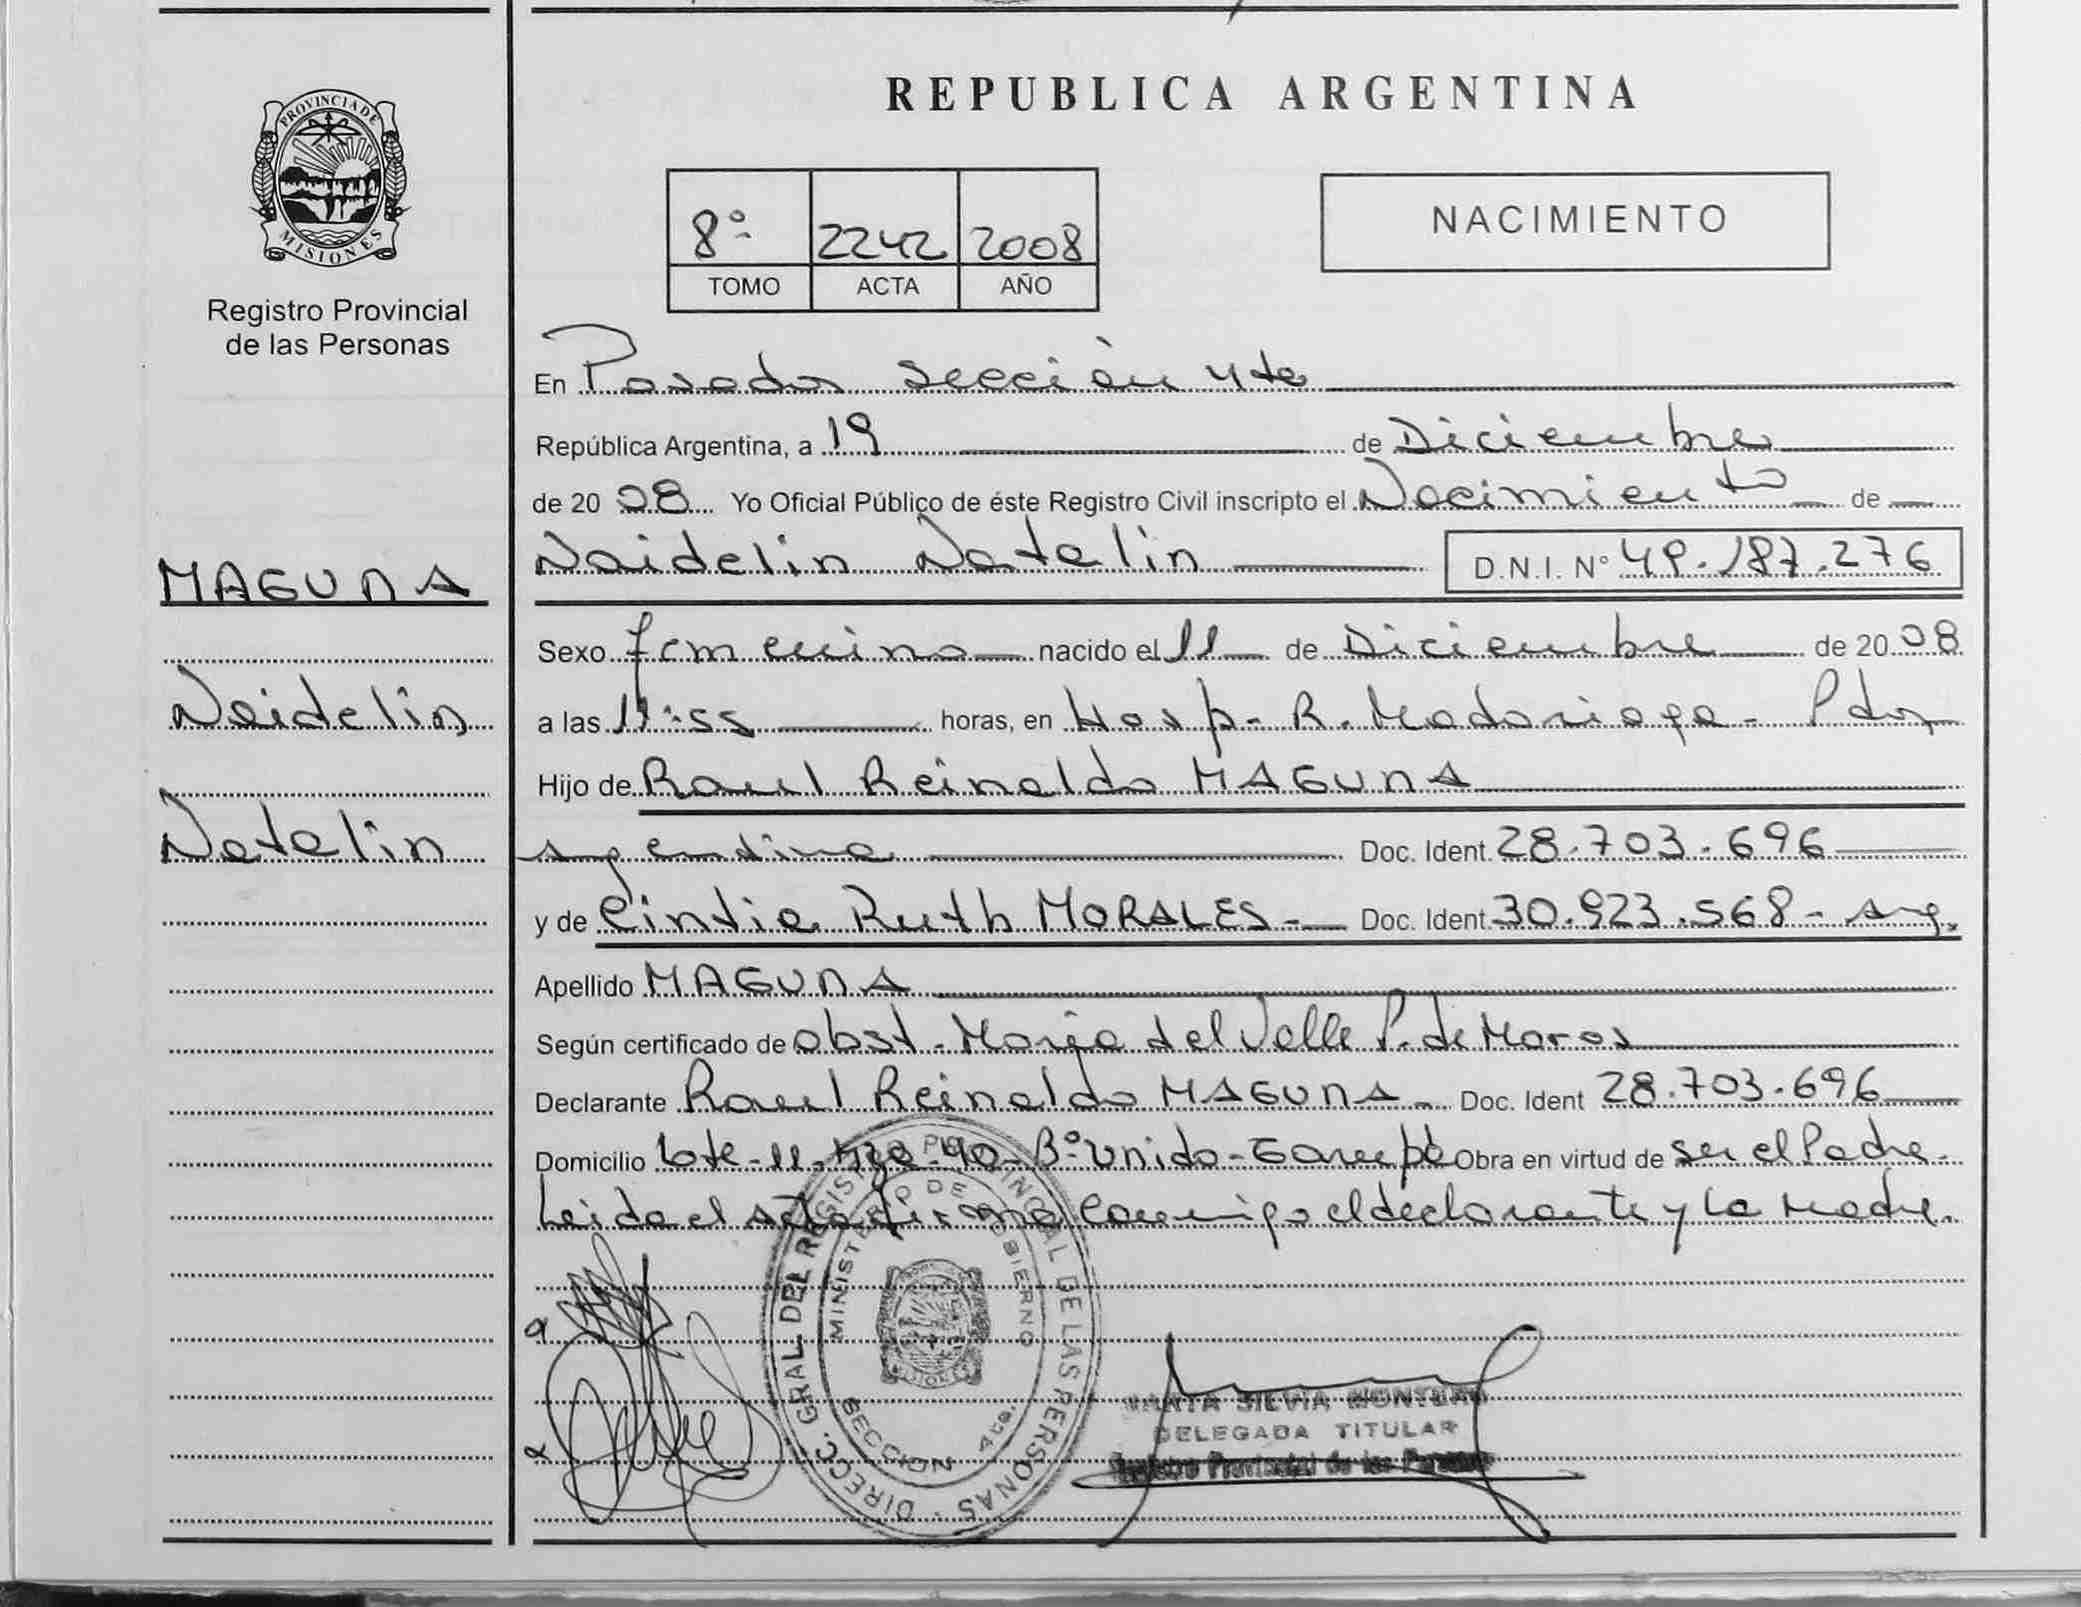 REPUBLICA ARGENTINA
PROVINCIA DE
MISIONES
Registro Provincial
de las Personas
8º 2242 2008
TOMO ACTA AÑO
NACIMIENTO
En Posadas sección 4ta
República Argentina, a 19 de Diciembre
de 2008 Yo Oficial Público de éste Registro Civil inscripto el Nacimiento de
Naidelin Natalin D.N.I. Nº 49.187.276
MAGUNA
Naidelin
Natalin
Sexo femenino nacido el 11 de Diciembre de 2008
a las 11:55 horas, en Hosp. R. Madariaga - Pdas
Hijo de Raul Reinaldo MAGUNA
argentina Doc. Ident. 28.703.696
y de Cintia Ruth MORALES - Doc. Ident. 30.923.568 - arg.
Apellido MAGUNA
Según certificado de obst. María del Valle P. de Maros
Declarante Raul Reinaldo MAGUNA - Doc. Ident 28.703.696
Domicilio lote - 11 - Mza - 40 - Bº Unido - Garupá Obra en virtud de ser el Padre.
Leida el acta firma conmigo el declarante y la Madre.
DIRECC. GRAL. DEL REGISTRO PROVINCIAL DE LAS PERSONAS
MINISTERIO DE GOBIERNO
SECCION 4ta.
SILVIA
DELEGADA TITULAR
Registro Provincial de las Personas